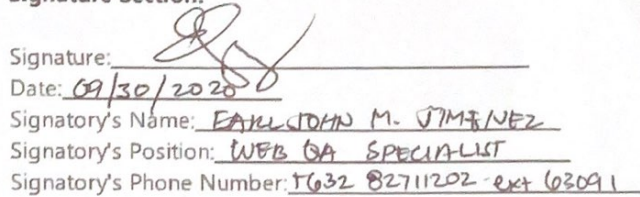 Signature:
Date: 09/30/2020
Signatory's Name: EARL JOHN M. JIMENEZ
Signatory's Position: WEB QA SPECIALIST
Signatory's Phone Number: +632 82711202 ext 63091